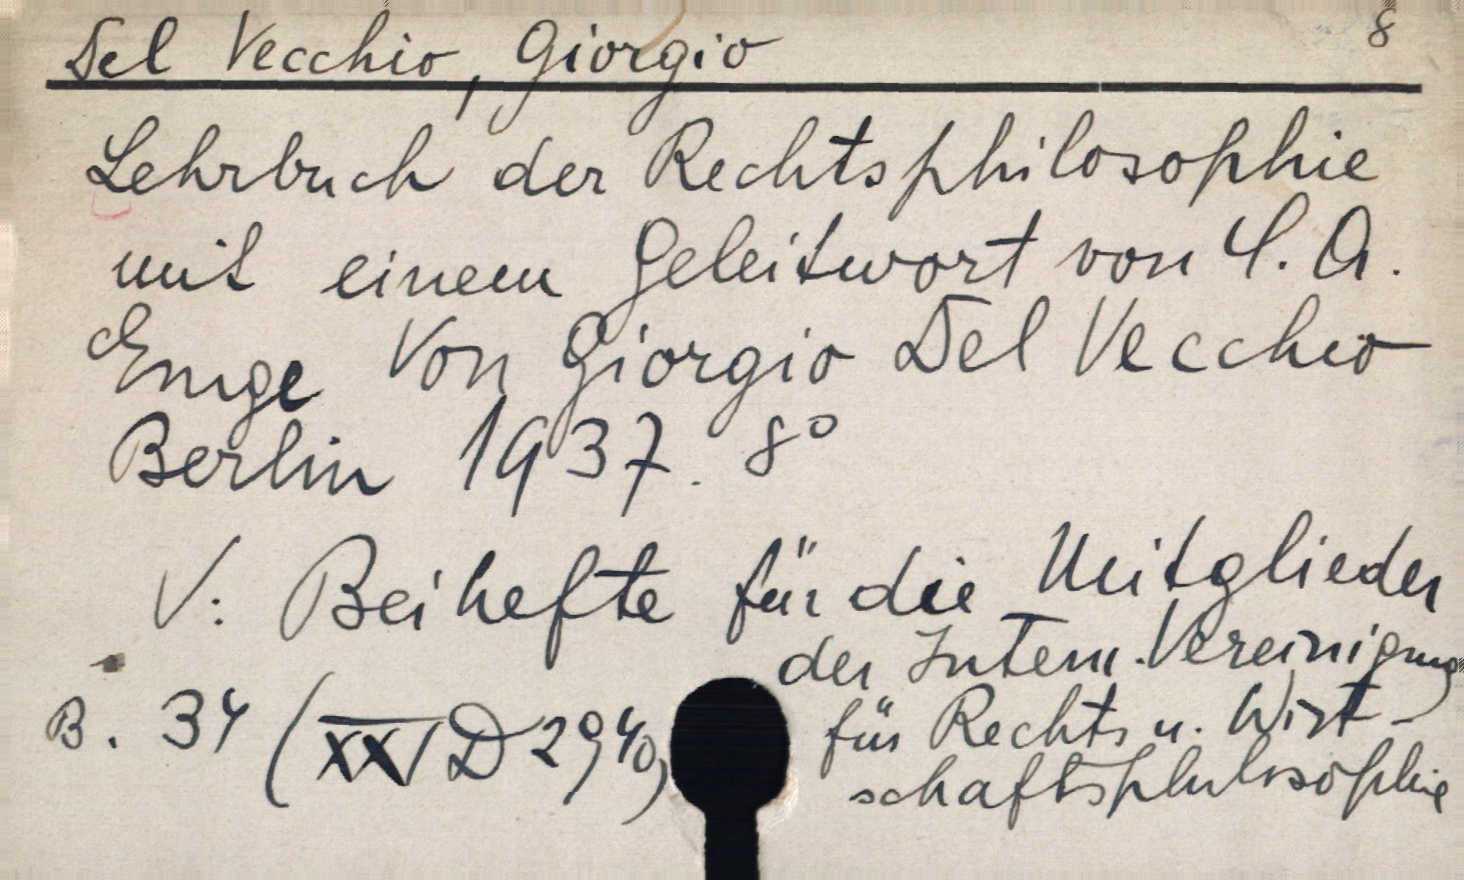 8
Del Vecchio, Giorgio
Lehrbuch der Rechtsphilosophie
mit einem Geleitwort von C. A.
Emge Von Giorgio Del Vecchio
Berlin 1937. 8°
V: Beihefte für die Mitglieder
der Intern. Vereinigung
für Rechts u. Wirt-
schaftsphilosophie
B. 34 (XXI D 2940)